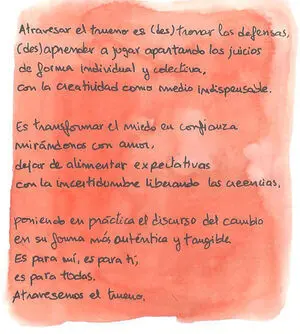 Atravesar el trueno es (des)tronar las defensas,
(des)aprender a jugar apartando los juicios
de forma individual y colectiva,
con la creatividad como medio indispensable.
Es transformar el miedo en confianza
mirándonos con amor,
dejar de alimentar expectativas
con la incertidumbre liberando las creencias,
poniendo en práctica el discurso del cambio
en su forma más auténtica y tangible.
Es para mí, es para ti,
es para todas.
Atravesemos el trueno.